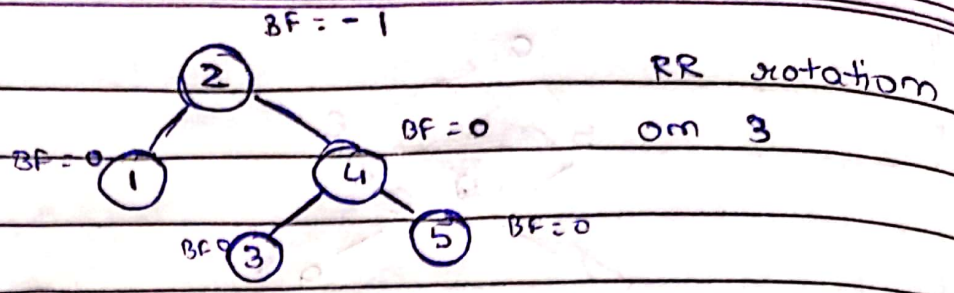 BF = - 1
2
RR rotation
on 3
BF = 0
BF = 0
1
4
BF 0
3
5
BF = 0